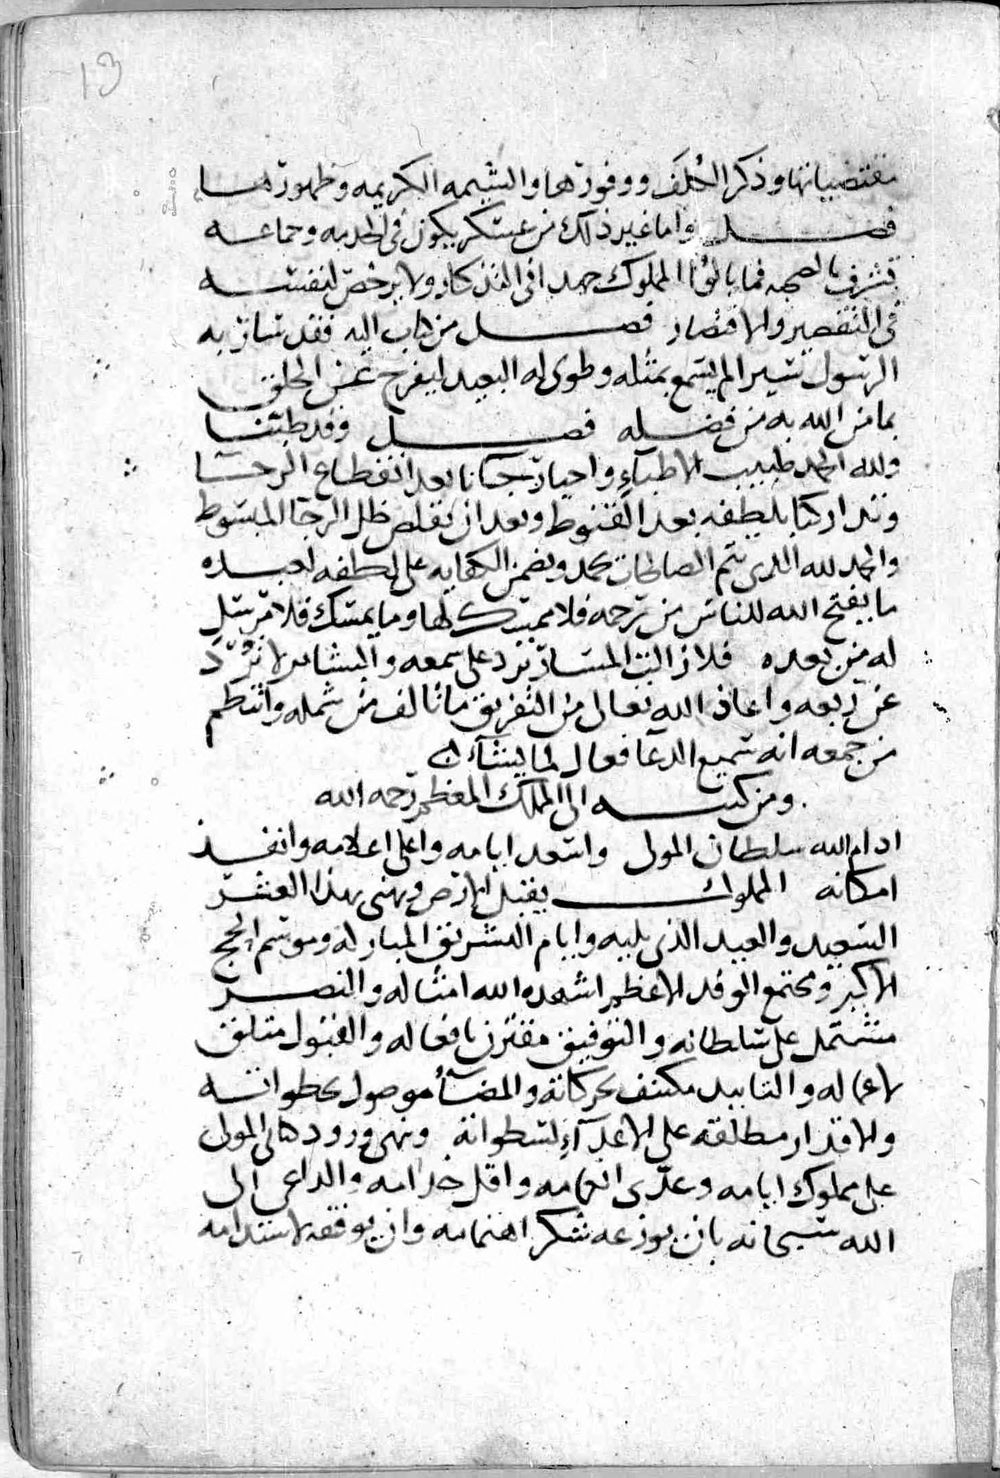 13
مقتضياتها وذكر الخلق ووفورها والشيمه الكريمه وظهورها
فصل واما غير ذلك من عسكر يكون فى الخدمه وجماعه
تشرف بالصحبه فما يالوا المملوك جهدا فى التذكار ولا يرخص لنفسه
فى التقصير والاقتصار فصل من كتاب اليه فقد سار به
الرسول سيرا لم يسمع بمثله وطوى له البعيد ليفرح عن الخلق
بما من الله به من فضله فصل وقد طبنا
ولله الحمد طبيب الاطباء واحيا رجانا بعد انقطاع الرجا
وتداركنا بلطفه بعد القنوط وبعد ان تقلص ظل الرجا المبسوط
والحمد لله الذى تتم الصالحات بحمده ويضمن الكفايه على لطفه لعبده
ما يفتح الله للناس من رحمه فلا ممسك لها وما يمسك فلا مرسل
له من بعده فلا زالت المسار ترد على سمعه والبشاير لا ترد
عن ربعه واعاذ الله تعالى من التفريق ما تالف من شمله وانتظم
من جمعه انه سميع الدعا فعال لما يشاء
ومن كتبه الى الملك المعظم رحمه الله
ادام الله سلطان المولى واسعد ايامه واعلى اعلامه وانفذ
احكامه المملوك يقبل الارض ويهنى بهذا العشر
السعيد والعيد الذى يليه وايام التشريق المباركه وموسم الحج
الاكبر ومجتمع الوفد الاعظم اشهده الله امثاله والنصر
مشتمل على سلطانه والتوفيق مقترن بافعاله والقبول متلق
لاعماله والتاييد مكنف بحركاته والمضاء موصول بخطواته
والاقدار مطلقه على الاعداء لسطواته وينهى ورود كتابى المولى
على مملوك ايامه وغذى انعامه واقل خدامه والداعى الى
الله سبحانه بان يوزعه شكر اهتمامه وان يوفقه لاستدامه